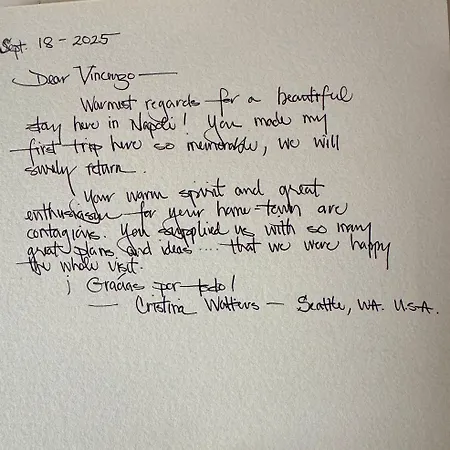 Sept. 18 - 2025
Dear Vincenzo —
Warmest regards for a beautiful
stay here in Napoli! You made my
first trip here so memorable, we will
surely return.
Your warm spirit and great
enthusiasm for your home-town are
contagious. You supplied us with so many
great plans and ideas .... that we were happy
the whole visit.
¡ Gracias por todo!
— Cristina Watters — Seattle, WA. U.S.A.